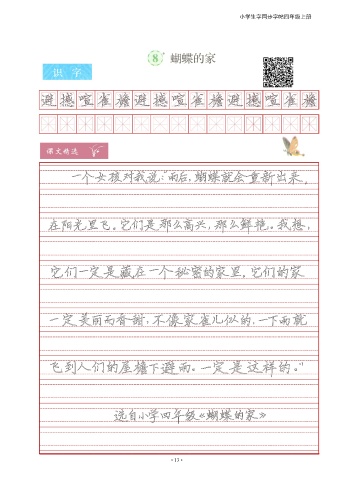 小学生字同步字帖四年级上册
8 蝴蝶的家
识 字
避 撼 喧 雀 檐 避 撼 喧 雀 檐 避 撼 喧 雀 檐
课文精选
一个女孩对我说:“雨后,蝴蝶就会重新出来,
在阳光里飞。它们是那么高兴,那么鲜艳。我想,
它们一定是藏在一个秘密的家里,它们的家
一定美丽而香甜,不像家雀儿似的,一下雨就
飞到人们的屋檐下避雨。一定是这样的。”
选自小学四年级《蝴蝶的家》
·13·